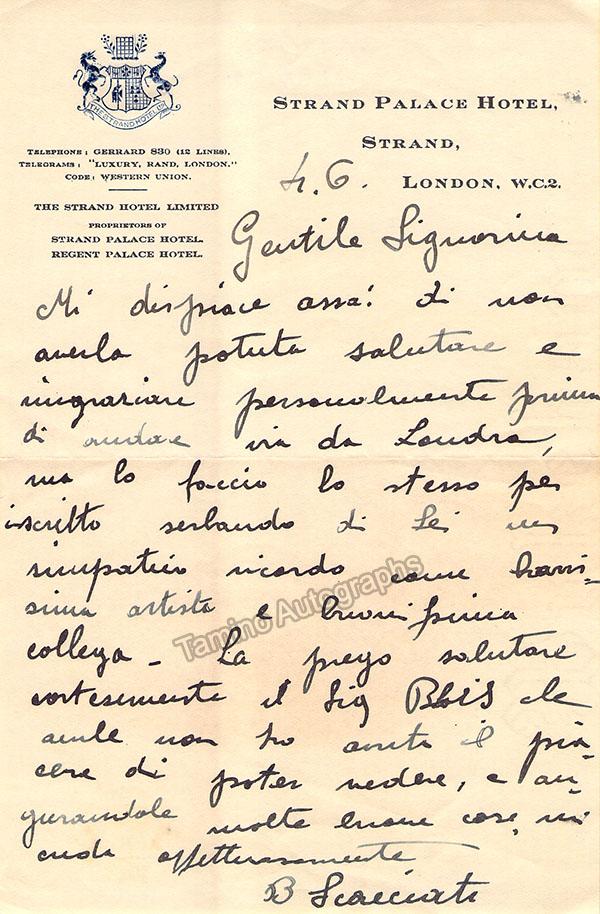 THE STRAND HOTEL LTD
TELEPHONE: GERRARD 830 (12 LINES).
TELEGRAMS: "LUXURY, RAND, LONDON."
CODE: WESTERN UNION.
THE STRAND HOTEL LIMITED
PROPRIETORS OF
STRAND PALACE HOTEL.
REGENT PALACE HOTEL.
STRAND PALACE HOTEL,
STRAND,
LONDON, W.C.2.
4.6.
Gentile Signorina
Mi dispiace assai di non
averla potuta salutare e
ringraziare personalmente prima
di andare via da Londra,
ma lo faccio lo stesso per
iscritto serbando di Lei un
simpatico ricordo come bravis-
sima artista e buonissima
collega - La prego salutare
cortesemente il Sig che
anche non ho avuto il pia-
cere di poter vedere, e au-
gurandole molte buone cose, mi
creda affettuosamente
B Scacciati
Tamino Autographs